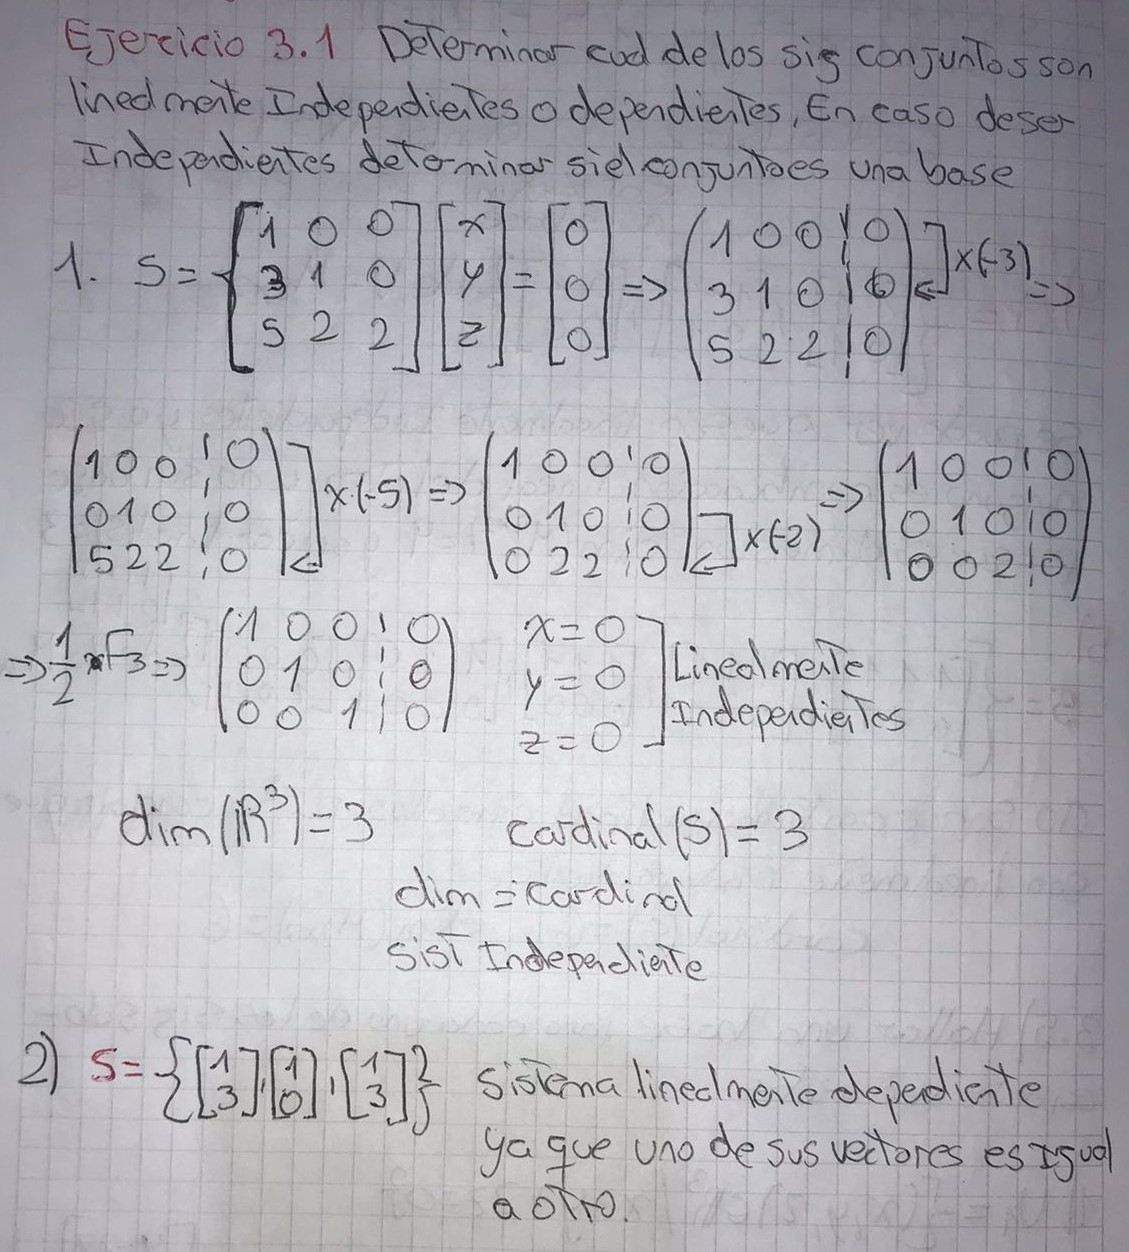 Ejercicio 3.1 Determinar cual de los sig conjuntos son
linealmente Independientes o dependientes, En caso de ser
Independientes determinar si el conjunto es una base
1. S = { [1 0 0; 3 1 0; 5 2 2] [x; y; z] = [0; 0; 0] => (1 0 0 | 0; 3 1 0 | 0; 5 2 2 | 0) x(-3) =>
(1 0 0 | 0; 0 1 0 | 0; 5 2 2 | 0) x(-5) => (1 0 0 | 0; 0 1 0 | 0; 0 2 2 | 0) x(-2) => (1 0 0 | 0; 0 1 0 | 0; 0 0 2 | 0)
=> 1/2 x F3 => (1 0 0 | 0; 0 1 0 | 0; 0 0 1 | 0) x = 0 y = 0 z = 0 ] Linealmente Independientes
dim(ℝ³) = 3 cardinal(S) = 3
dim = cardinal
sist Independiente
2) S = {[1; 3], [1; 0], [1; 3]} Sistema linealmente dependiente
ya que uno de sus vectores es Igual
a otro.